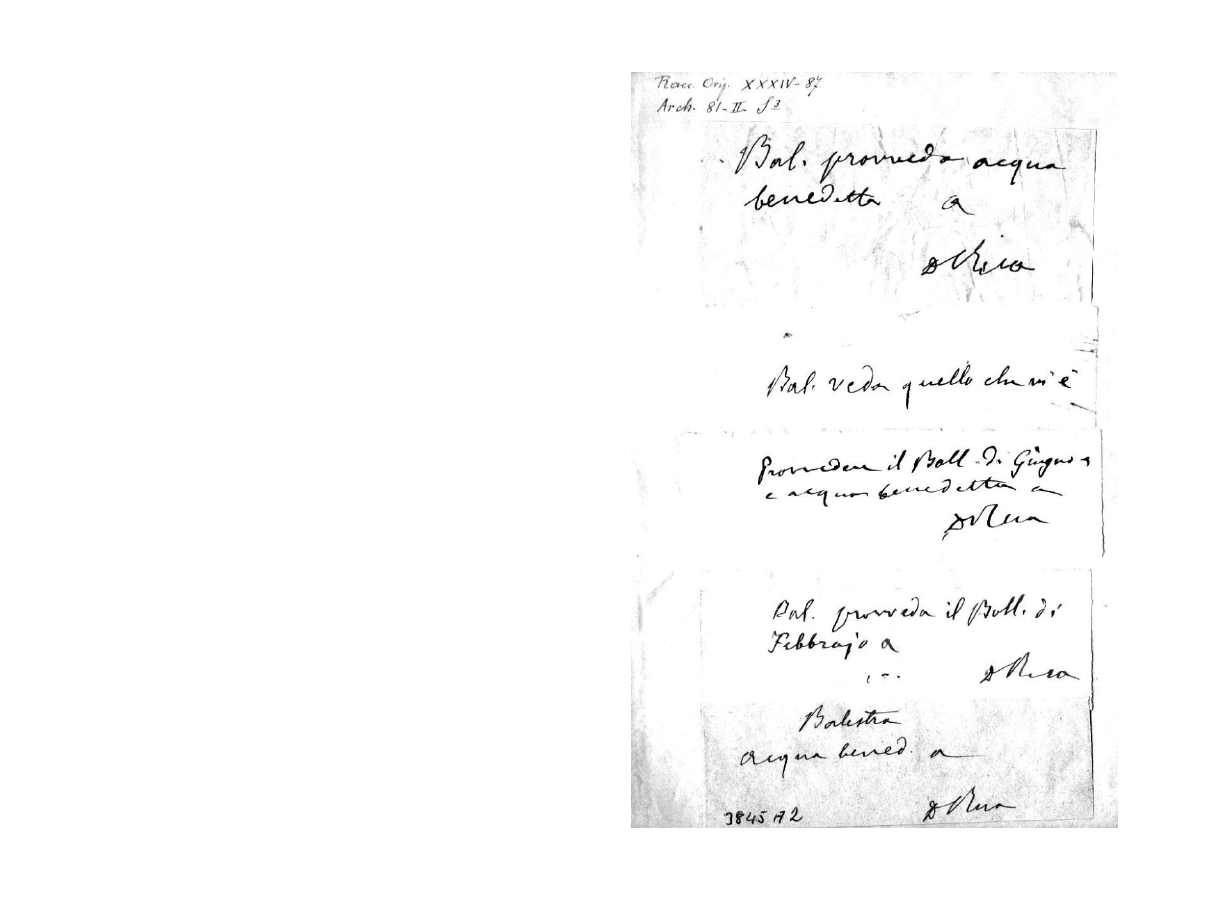 Racc. Orig. XXXIV-87
Arch. 81-II-
Bal. provveda acqua
benedetta a
D Rua
Bal. veda quello che vi è
Provvedere il Boll. di Giugno
e acqua benedetta a
D Rua
Bal. provveda il Boll. di
Febbrajo a
D Rua
Balestra
acqua bened. a
D Rua
3845 A 2